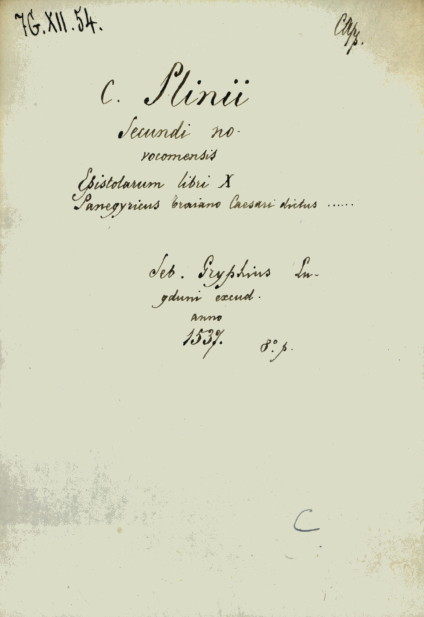 7G.XII.54.
C. Plinii
Secundi no-
vocomensis
Epistolarum libri X
Panegyricus traiano Caesari dictus ......
Seb. Gryphius Lu-
gduni excud.
anno
1537. 8º. p.
C